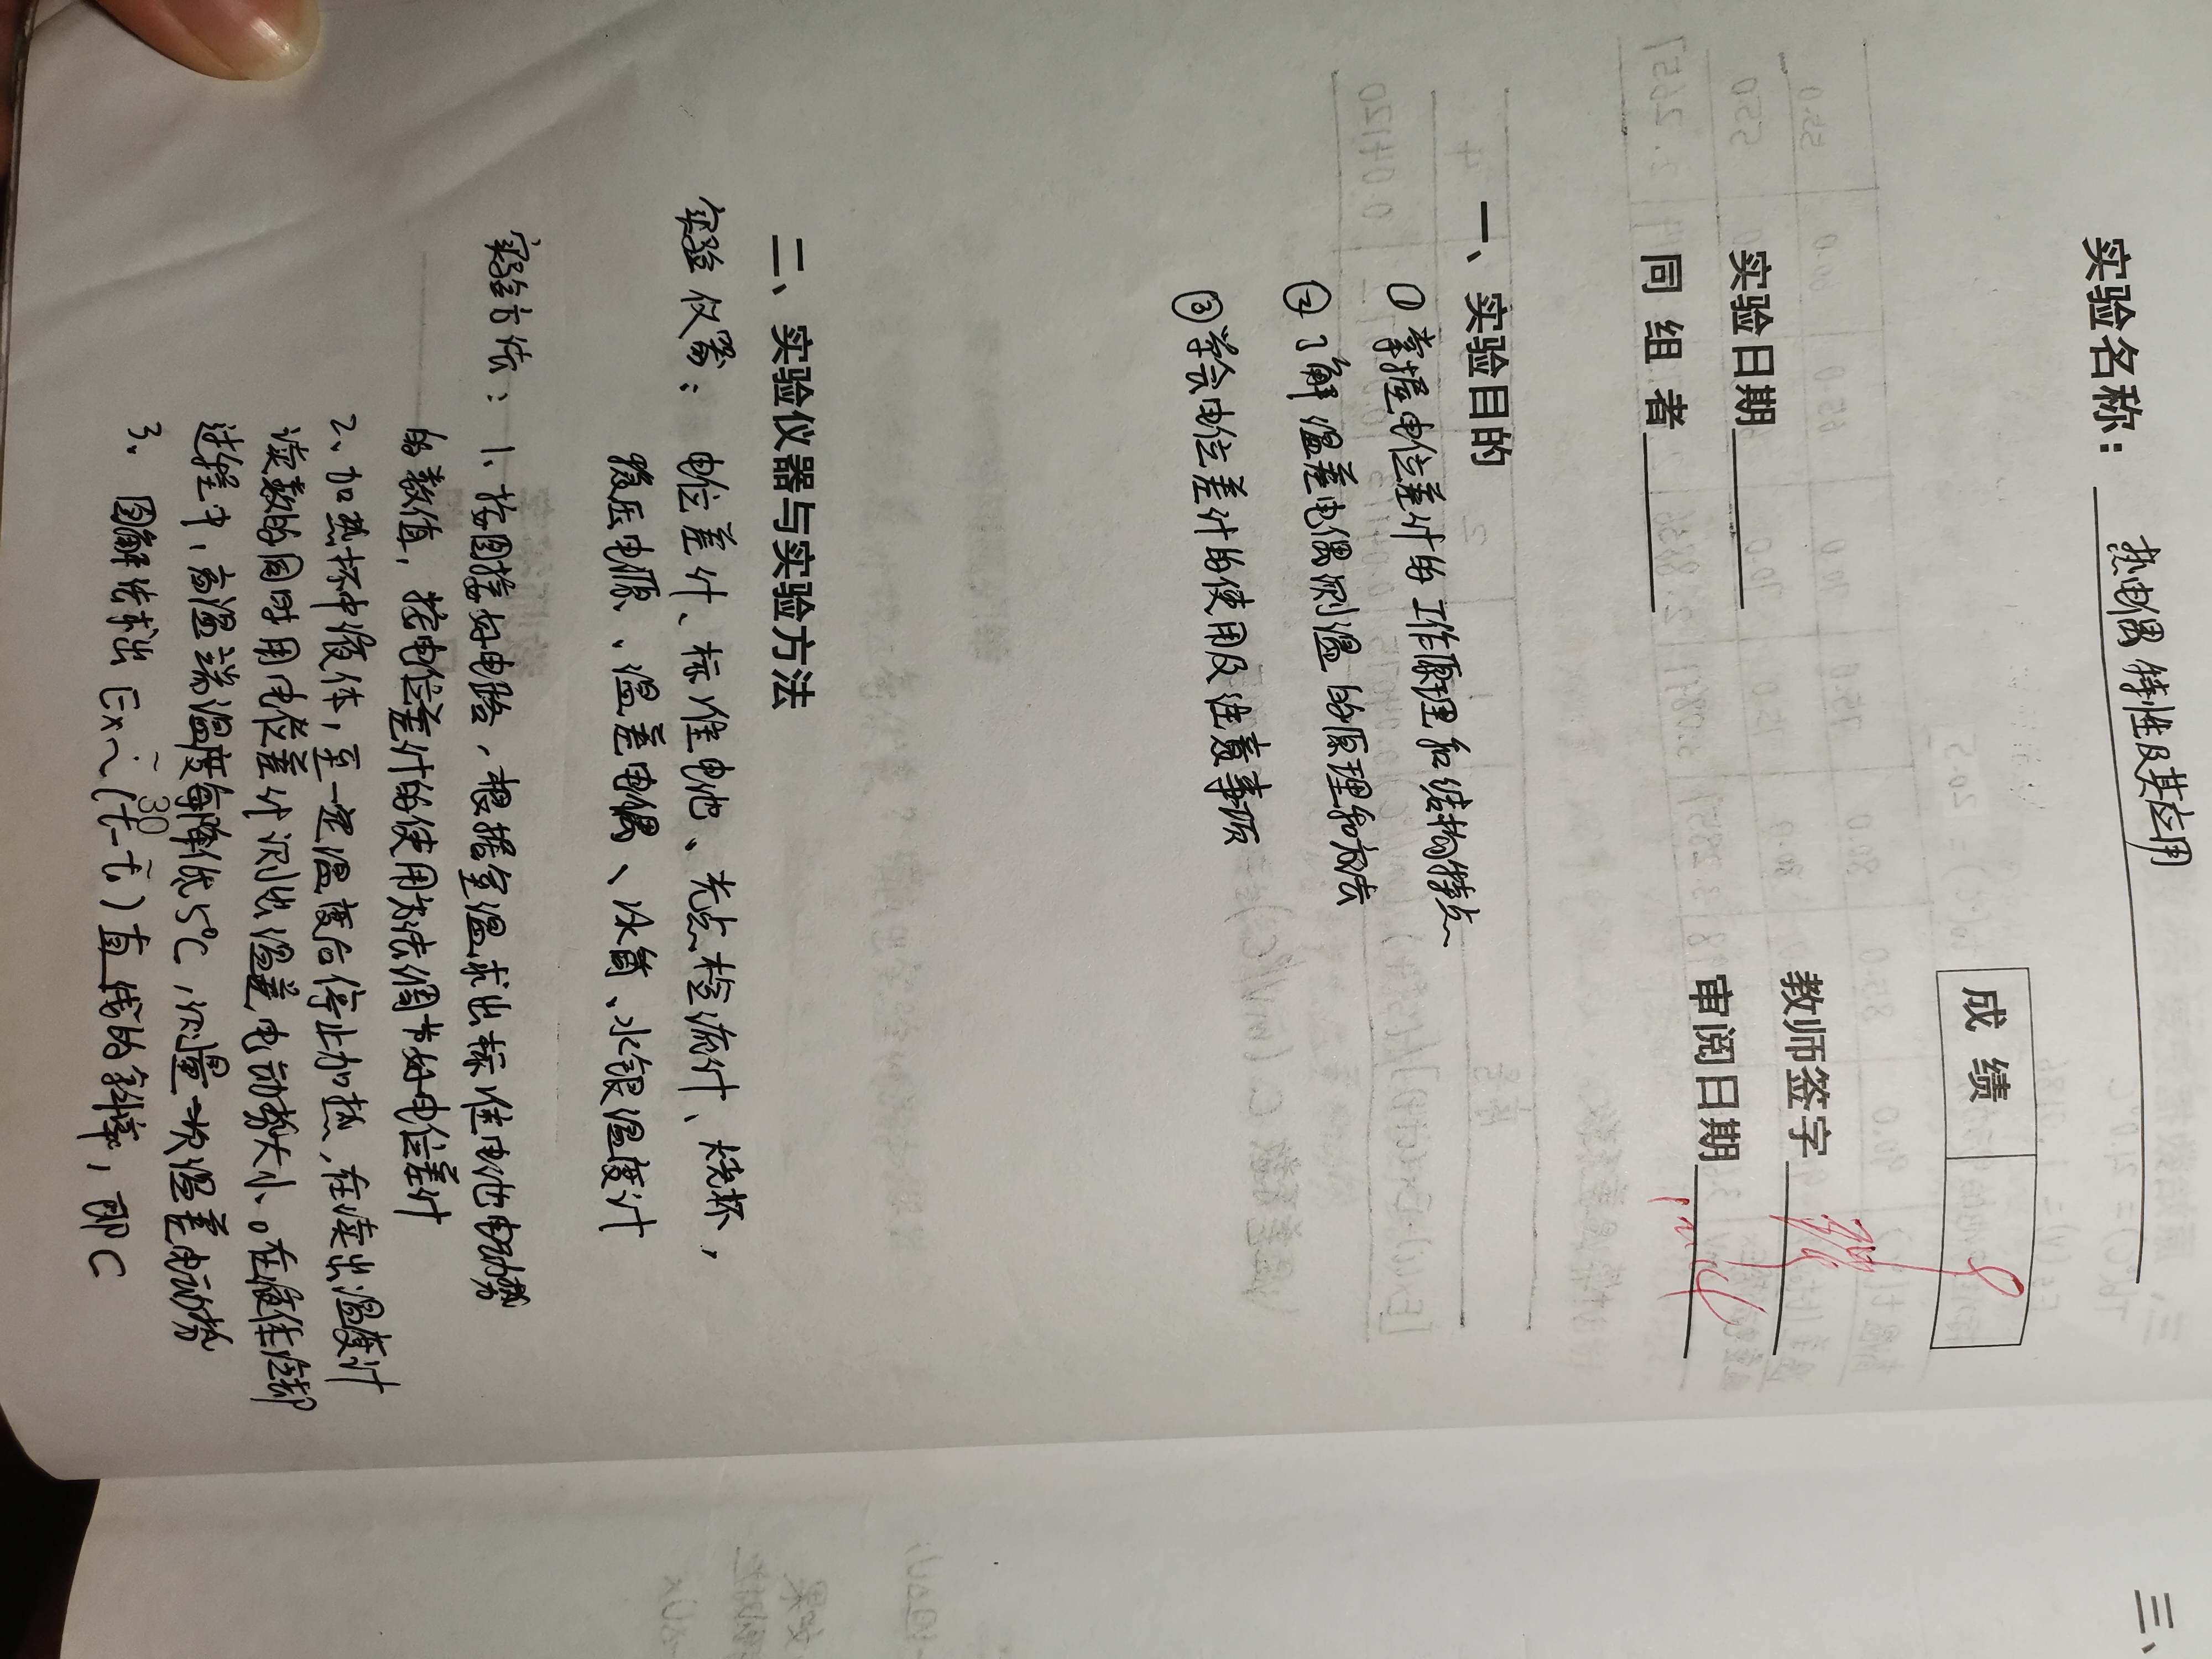 实验名称：热电偶特性及其应用
成 绩
实验日期
教师签字
同 组 者
审阅日期
一、实验目的
① 掌握电位差计的工作原理和结构特点
② 了解温差电偶测温的原理和方法
③ 学会电位差计的使用及注意事项
二、实验仪器与实验方法
实验仪器：电位差计、标准电池、光点检流计、烧杯，
稳压电源、温差电偶、冰筒、水银温度计
实验方法：1、按图接好电路，根据室温求出标准电池电动势
的数值，按电位差计的使用方法调节好电位差计
2、加热杯中液体，至一定温度后停止加热，在读出温度计
读数的同时用电位差计测出温差电动势大小。在液体冷却
过程中，高温端温度每降低5℃，测量一次温差电动势
3、图解法求出 Ex~(t-t₀)直线的斜率，即C
三、